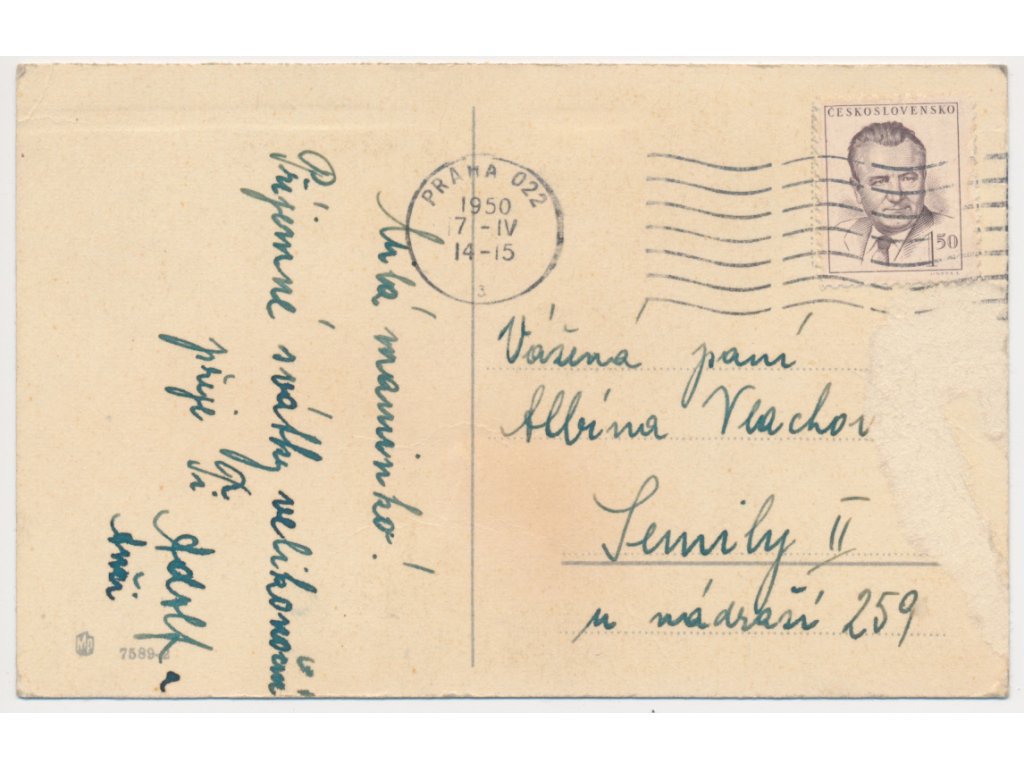 Milá maminko!
Příjemné svátky velikonoční
přeje Ti
Adolf a
PRAHA 022
1950
17-IV
14-15
3
ČESKOSLOVENSKO
150
Vážená paní
Albína Vlachov
Semily II
u nádraží 259
7589